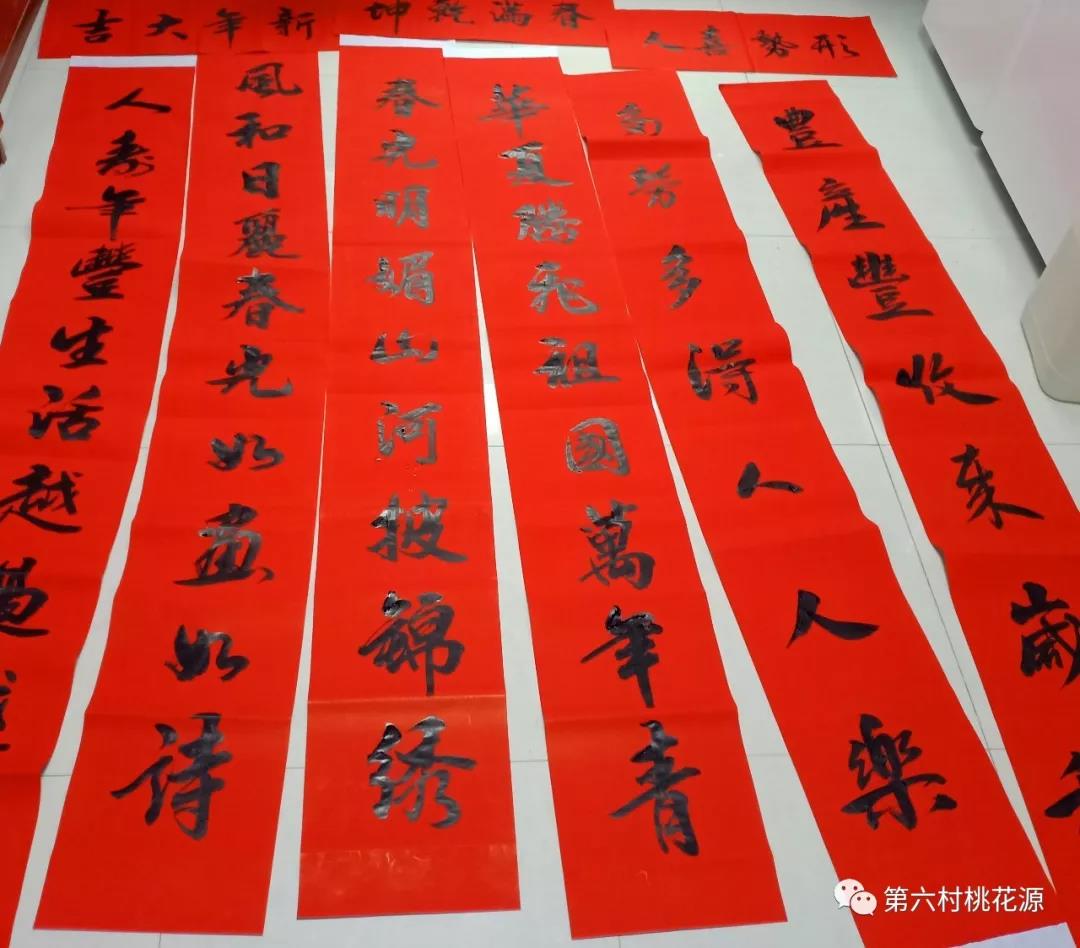 新年大吉
春滿乾坤
形勢喜人
人壽年豐生活越過
風和日麗春光如画如诗
春光明媚山河披錦绣
華夏騰飛祖國萬年青
多勞多得人人樂
豐產豐收来歲
第六村桃花源